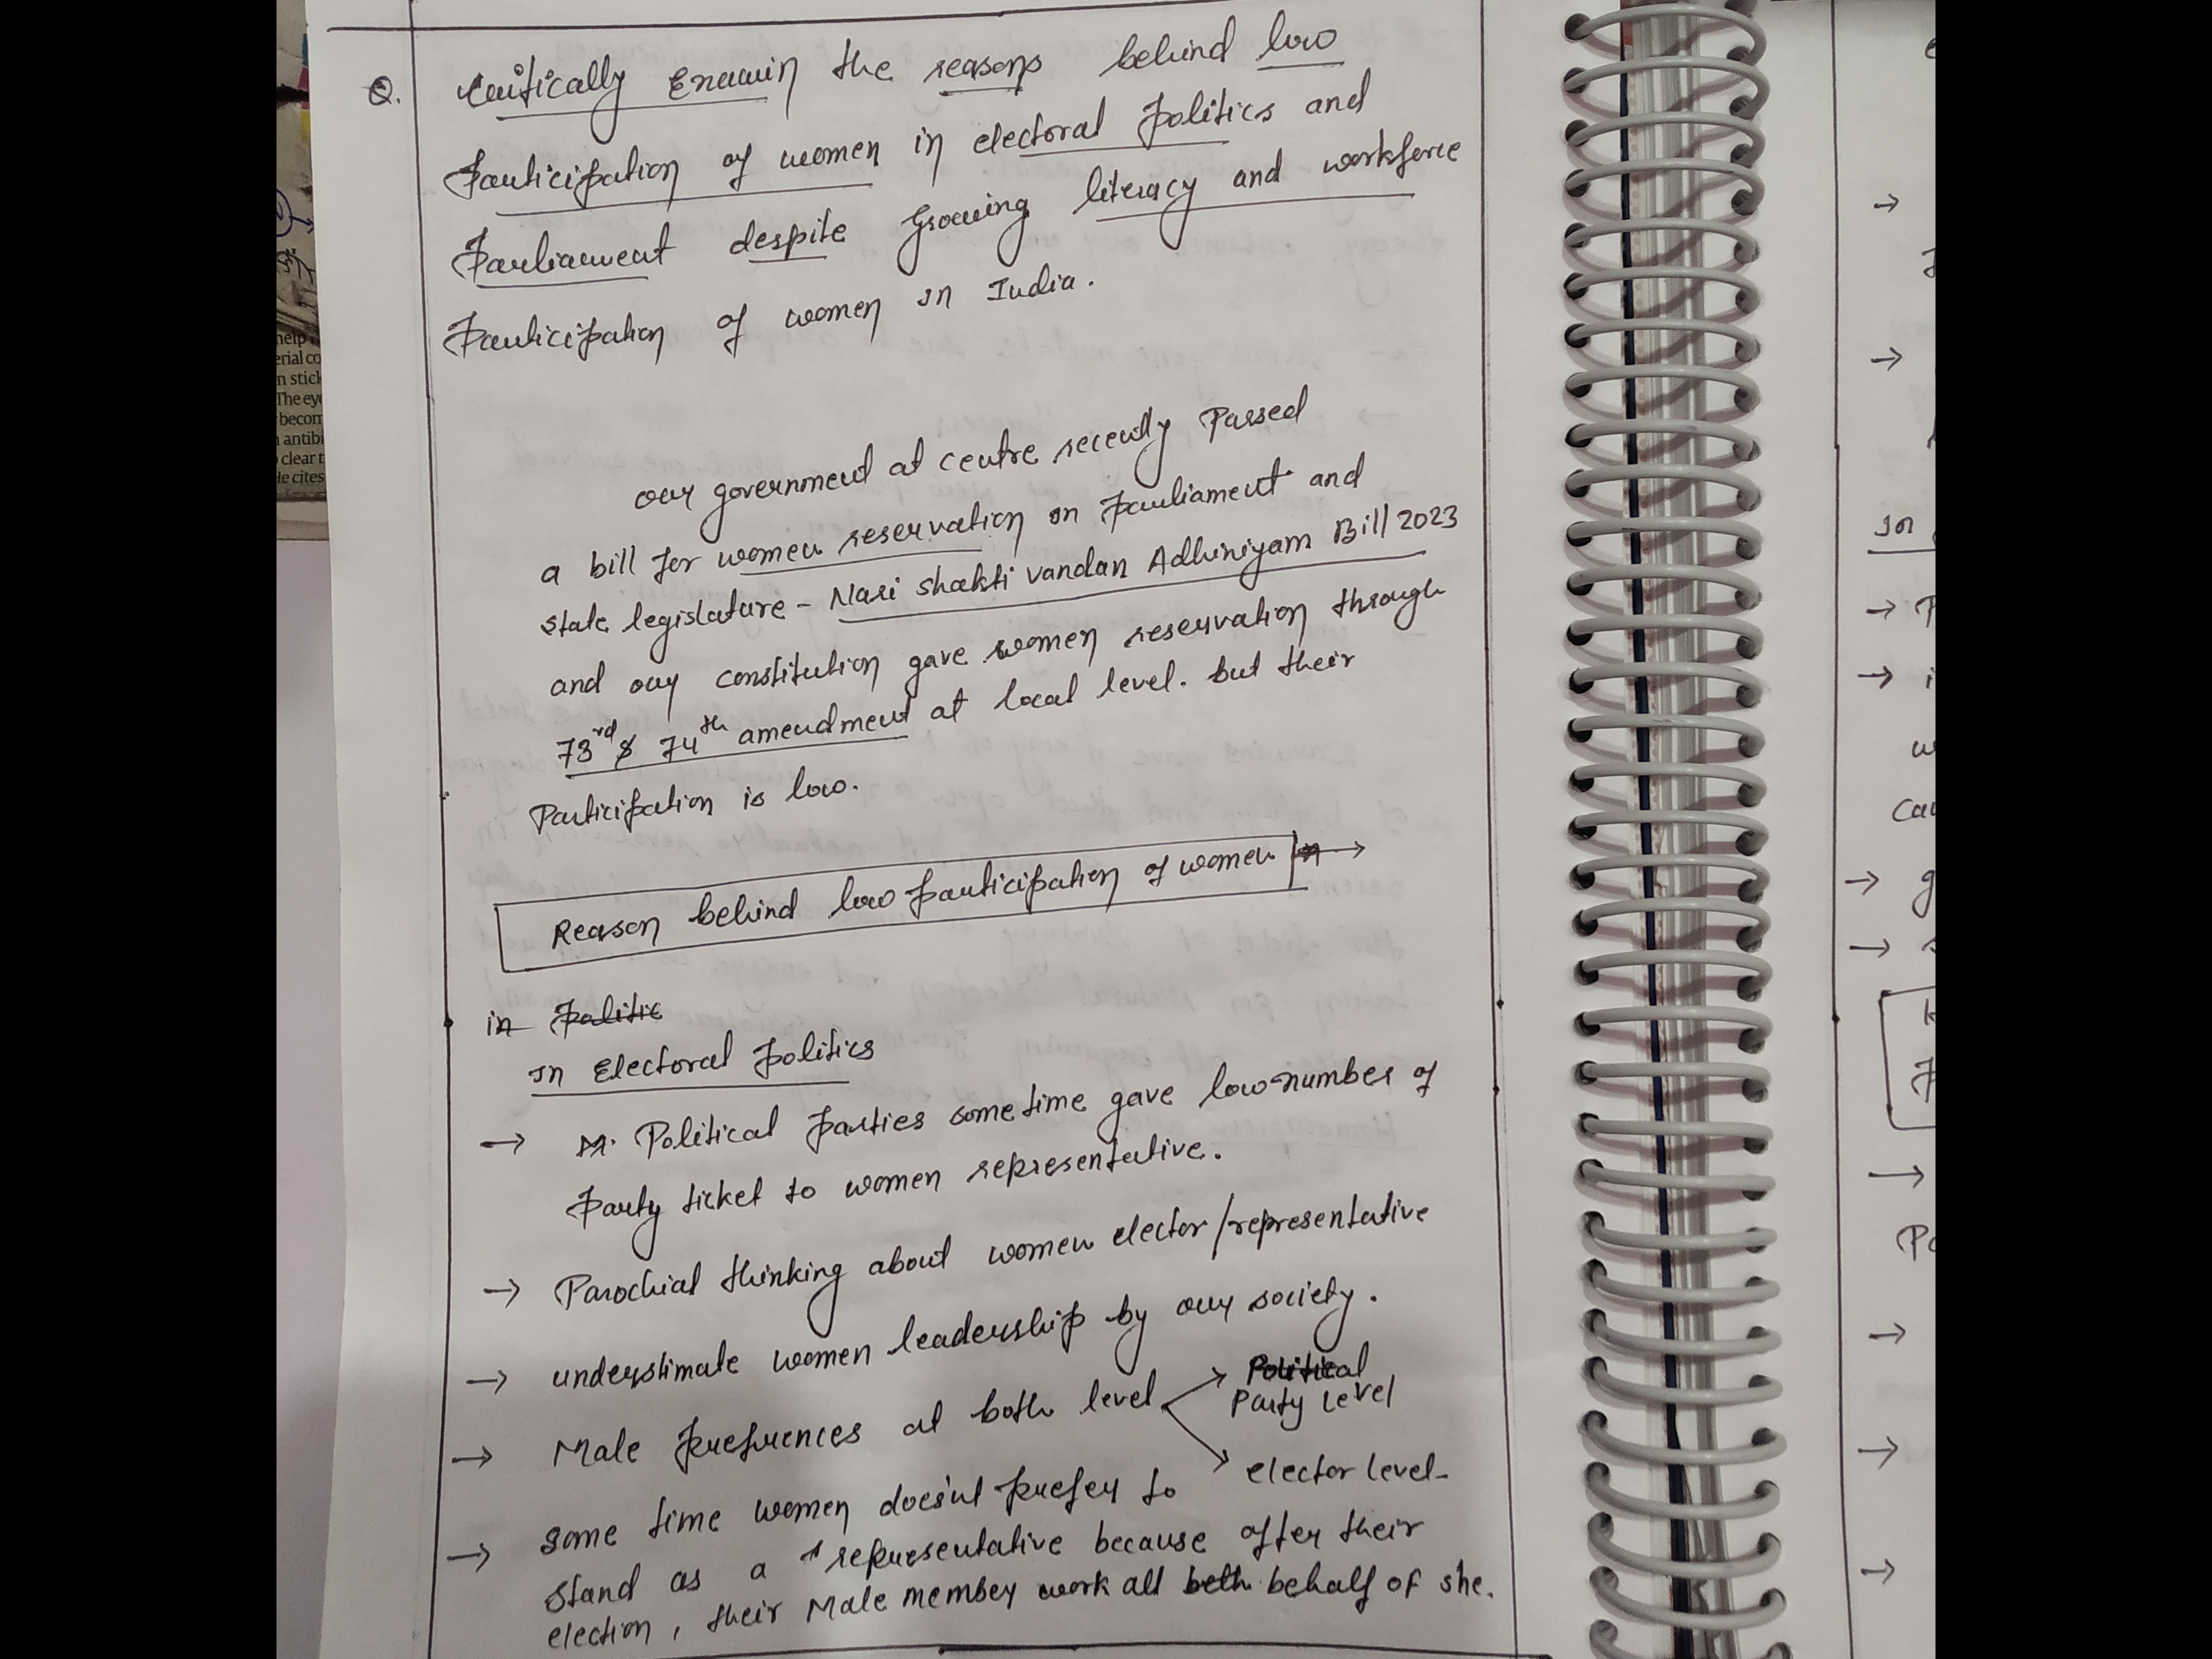 Q. Critically Examin the reasons behind low
Participation of women in electoral politics and
Parliament despite growing literacy and workforce
Participation of women in India.
our government at centre recently Passed
a bill for women reservation in Parliament and
state legislature - Nari shakti vandan Adhiniyam Bill 2023
and our constitution gave women reservation through
73rd & 74th amendment at local level. but their
Participation is low.
Reason behind low participation of women →
in Politic
In Electoral politics
→ Political parties some time gave low number of
Party ticket to women representative.
→ Parochial thinking about women elector/representative
→ understimate women leadership by our society.
→ Male prefrences at both level → Political
Party Level
→ elector level-
→ some time women doesn't prefer to
stand as a representative because after their
election, their Male member work all beth behalf of she.
help
erial co
n stick
The eye
becom
antibi
clear t
le cites
In
→ P
→ i
w
Cau
→ g
→ s
→
Po
→
→
→